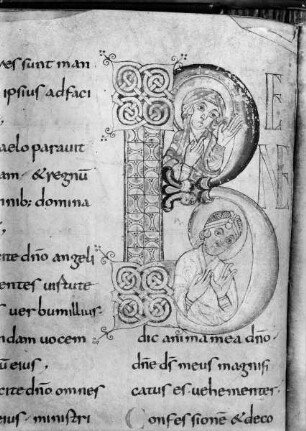 ves sunt man
ipsius ad faci
aelo paravit
am· & regnū
nib; domina
;
cite dño angeli
entes virtute
s verbum illius·
ndam vocem
ū eius,
cite dño omnes
eius· ministri
BE
NE
dic anima mea dño·
dñe ds̄ meus magnifi
catus es vehementer·
Confessionē & deco